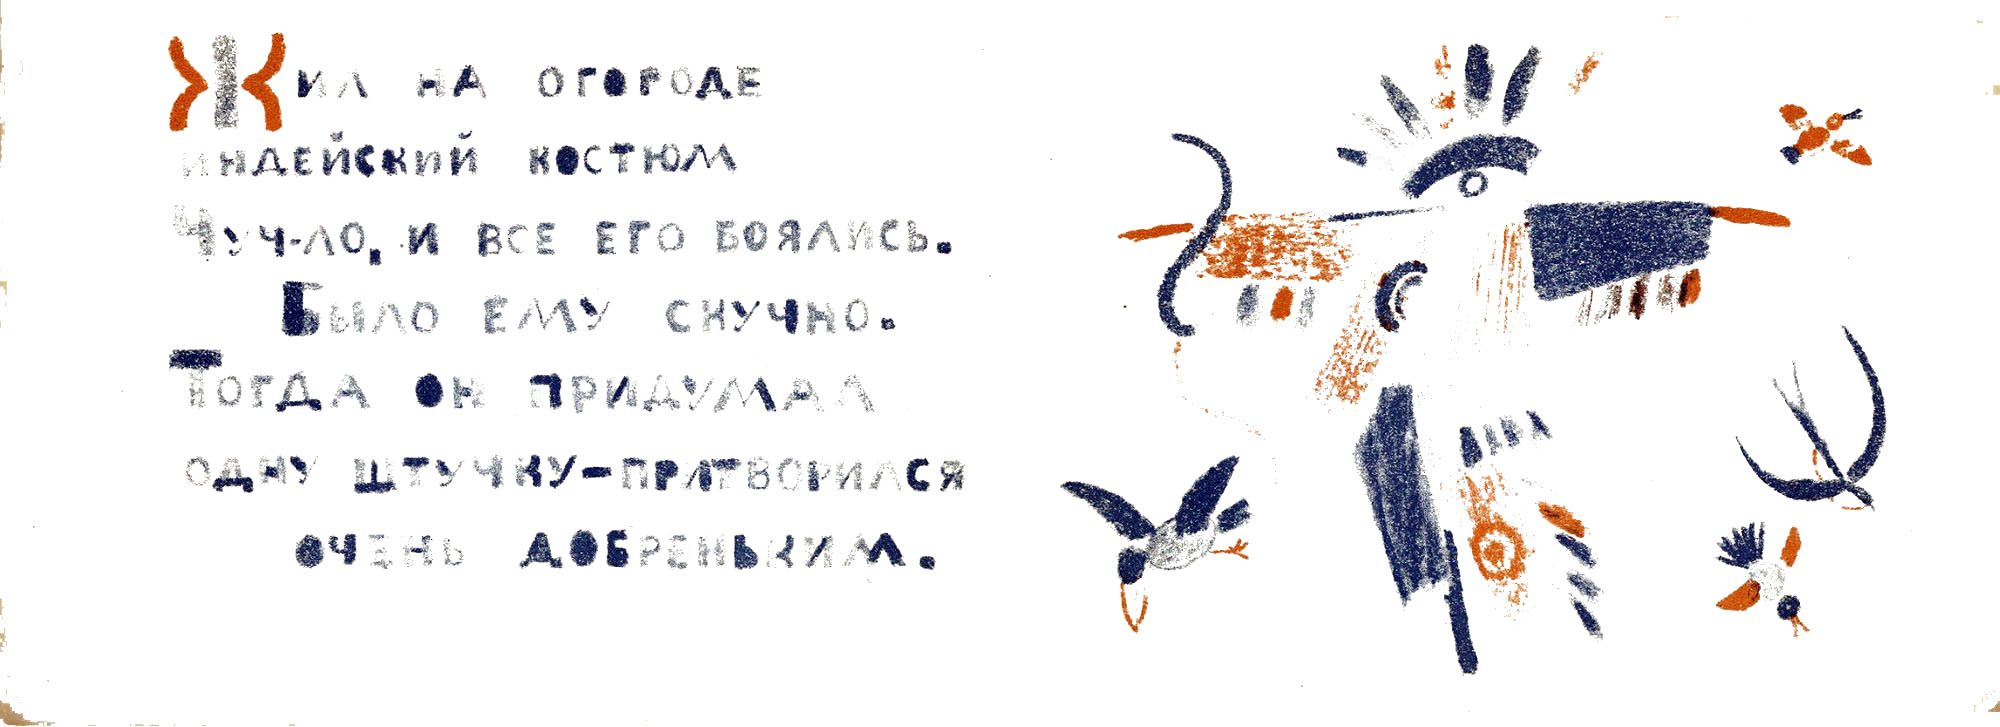 Жил на огороде
индейский костюм
Чуч-ло, и все его боялись.
Было ему скучно.
Тогда он придумал
одну штучку-притворился
очень добреньким.